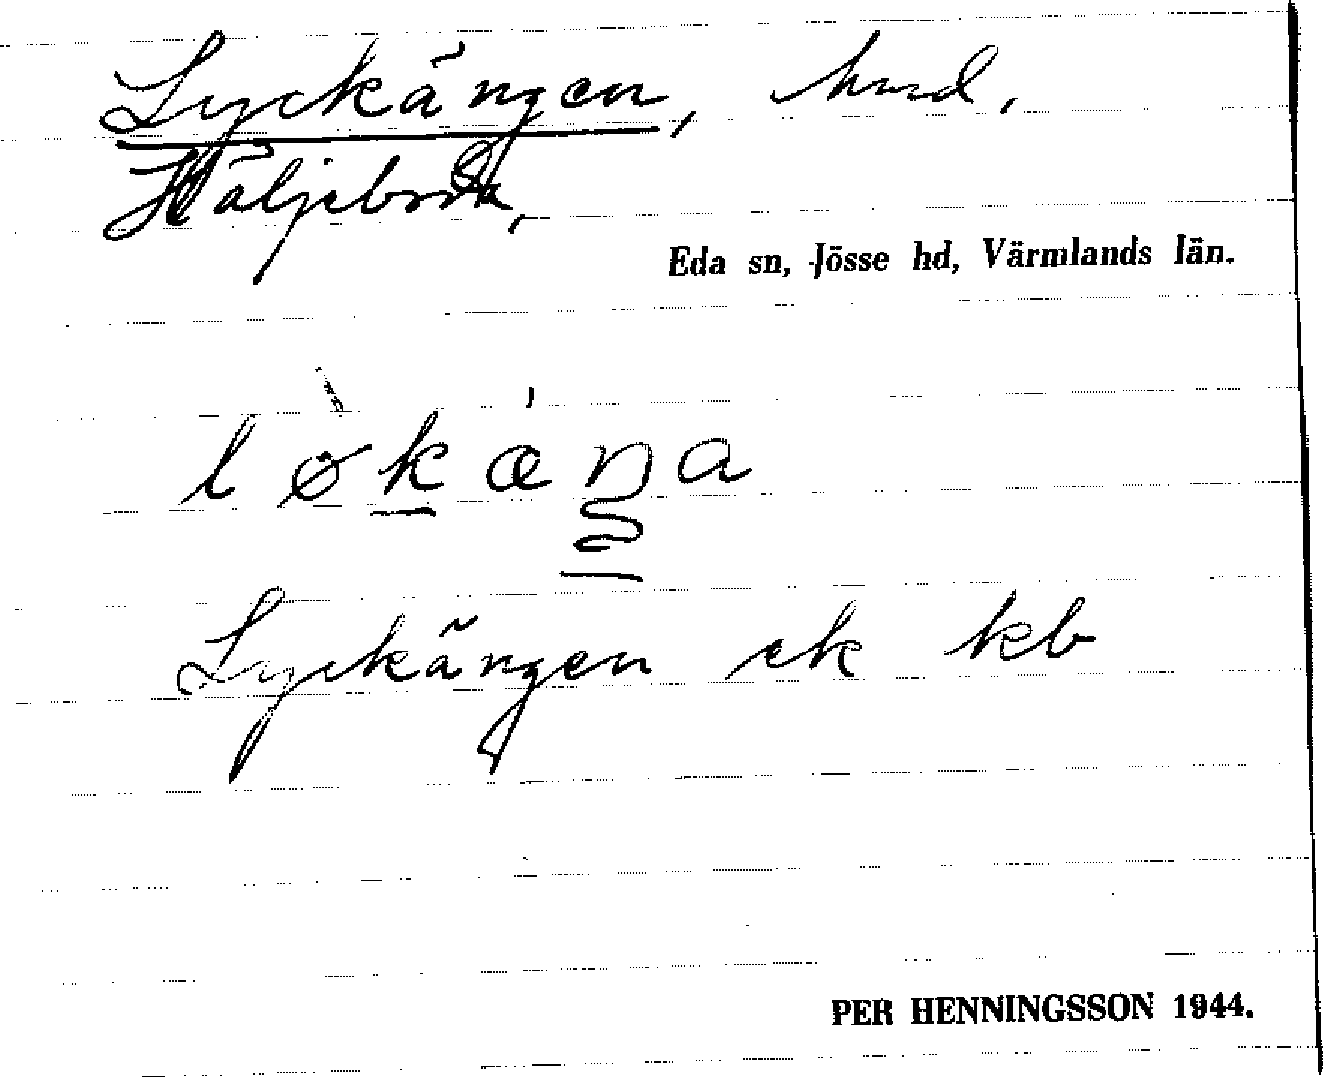 Lyckängen, hmd,
Häljeboda,
Eda sn, Jösse hd, Värmlands län.
løkæŋa
Lyckängen ek kb
PER HENNINGSSON 1944.